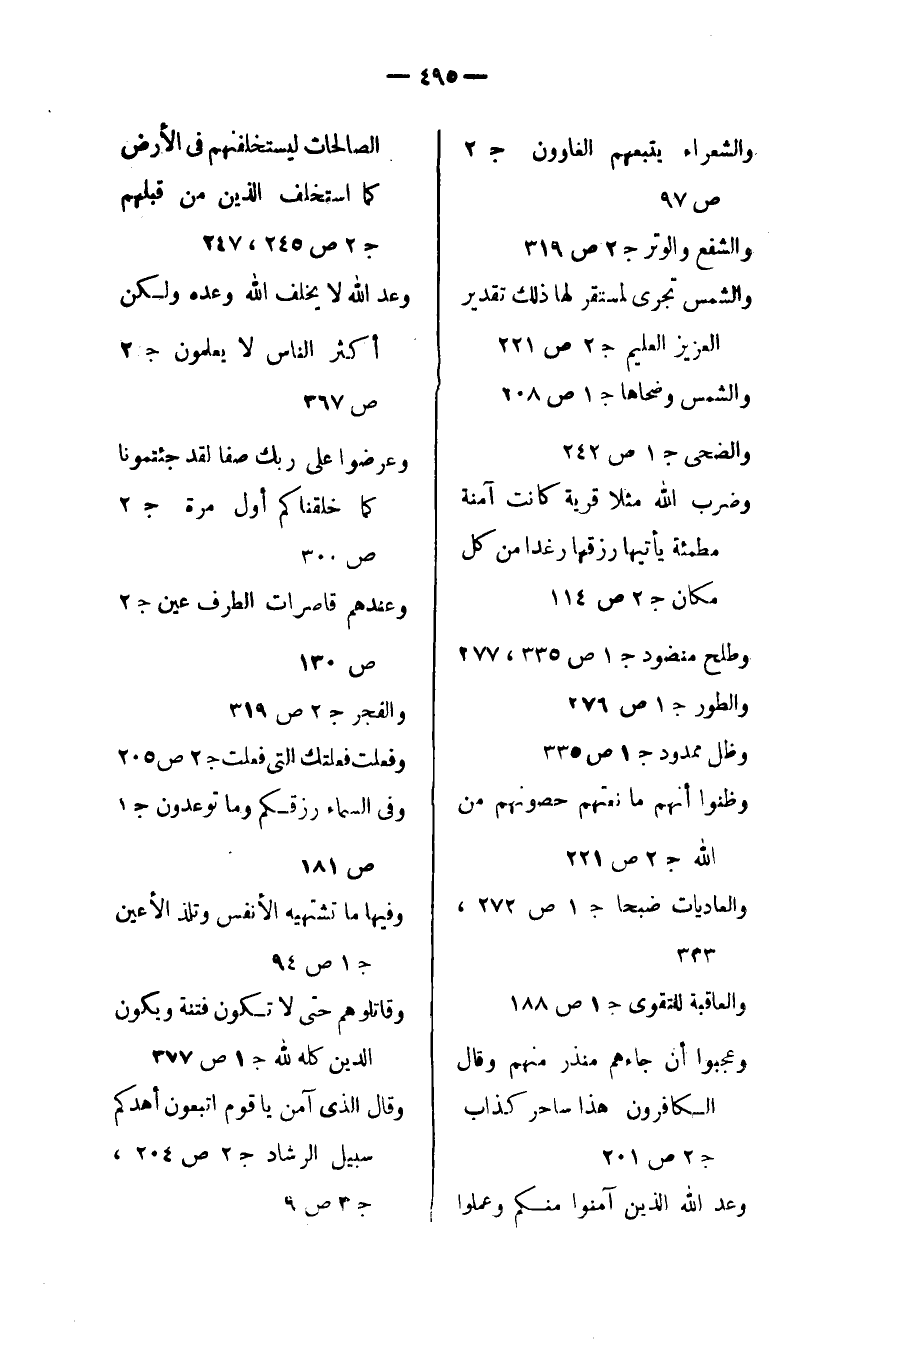 — ٤٩٥ —
والشعراء يتبعهم الغاوون ج ٢
ص ٩٧
والشفع والوتر ج ٢ ص ٣١٩
والشمس تجرى لمستقر لها ذلك تقدير
العزيز العليم ج ٢ ص ٢٢١
والشمس وضحاها ج ١ ص ٢٠٨
والضحى ج ١ ص ٢٤٢
وضرب الله مثلا قرية كانت آمنة
مطمئة يأتيها رزقها رغدا من كل
مكان ج ٢ ص ١١٤
وطلح منضود ج ١ ص ٣٣٥ ، ٢٧٧
والطور ج ١ ص ٢٧٦
وظل ممدود ج ١ ص ٣٣٥
وظنوا أنهم ما نعتهم حصونهم من
الله ج ٢ ص ٢٢١
والعاديات ضبحا ج ١ ص ٢٧٢ ،
٣٣٣
والعاقبة للتقوى ج ١ ص ١٨٨
وعجبوا أن جاءهم منذر منهم وقال
الكافرون هذا ساحر كذاب
ج ٢ ص ٢٠١
وعد الله الذين آمنوا منكم وعملوا
الصالحات ليستخلفنهم فى الأرض
كما استخلف الذين من قبلهم
ج ٢ ص ٢٤٥ ، ٢٤٧
وعد الله لا يخلف الله وعده ولكن
أكثر الناس لا يعلمون ج ٢
ص ٣٦٧
وعرضوا على ربك صفا لقد جئتمونا
كما خلقناكم أول مرة ج ٢
ص ٣٠٠
وعندهم قاصرات الطرف عين ج ٢
ص ١٣٠
والفجر ج ٢ ص ٣١٩
وفعلت فعلتك التى فعلت ج ٢ ص ٢٠٥
وفى السماء رزقكم وما توعدون ج ١
ص ١٨١
وفيها ما تشتهيه الأنفس وتلذ الأعين
ج ١ ص ٩٤
وقاتلوهم حتى لا تكون فتنة ويكون
الدين كله لله ج ١ ص ٣٧٧
وقال الذى آمن ياقوم اتبعون أهدكم
سبيل الرشاد ج ٢ ص ٢٠٤ ،
ج ٣ ص ٩